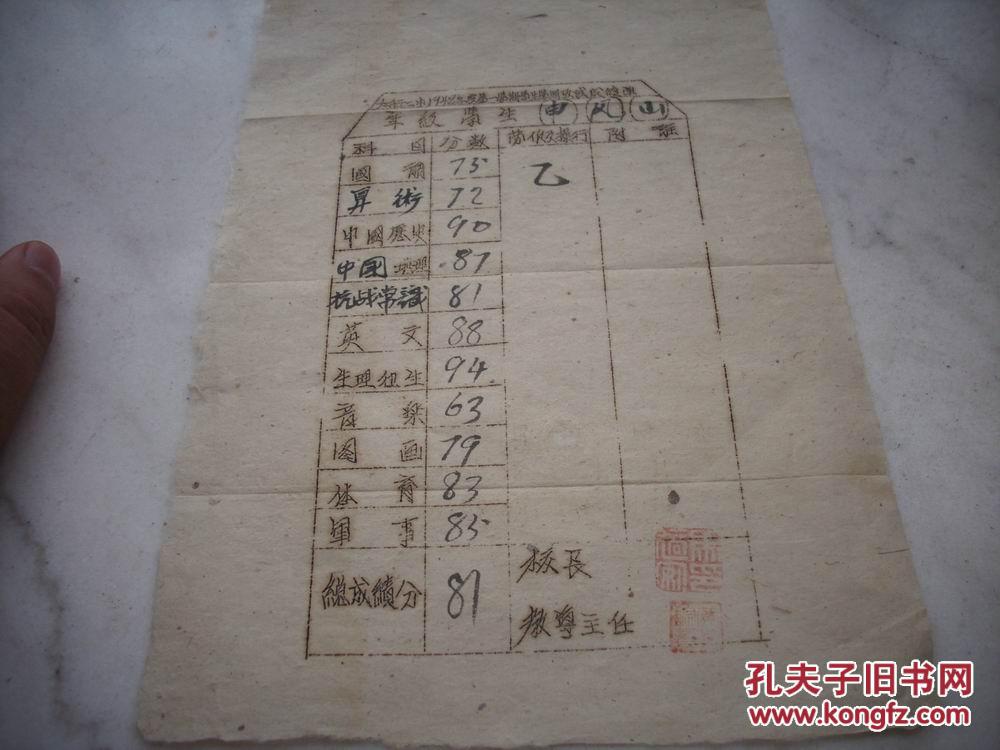 年級 學生 申 風 山
科目 分数 劳作及操行 附註
國語 75 乙
算術 72
中國歷史 90
中國地理 87
抗战常識 81
英文 88
生理卫生 94
音樂 63
图画 79
体育 83
軍事 85
總成績分 81
校長
教導主任
孔夫子旧书网
www.kongfz.com